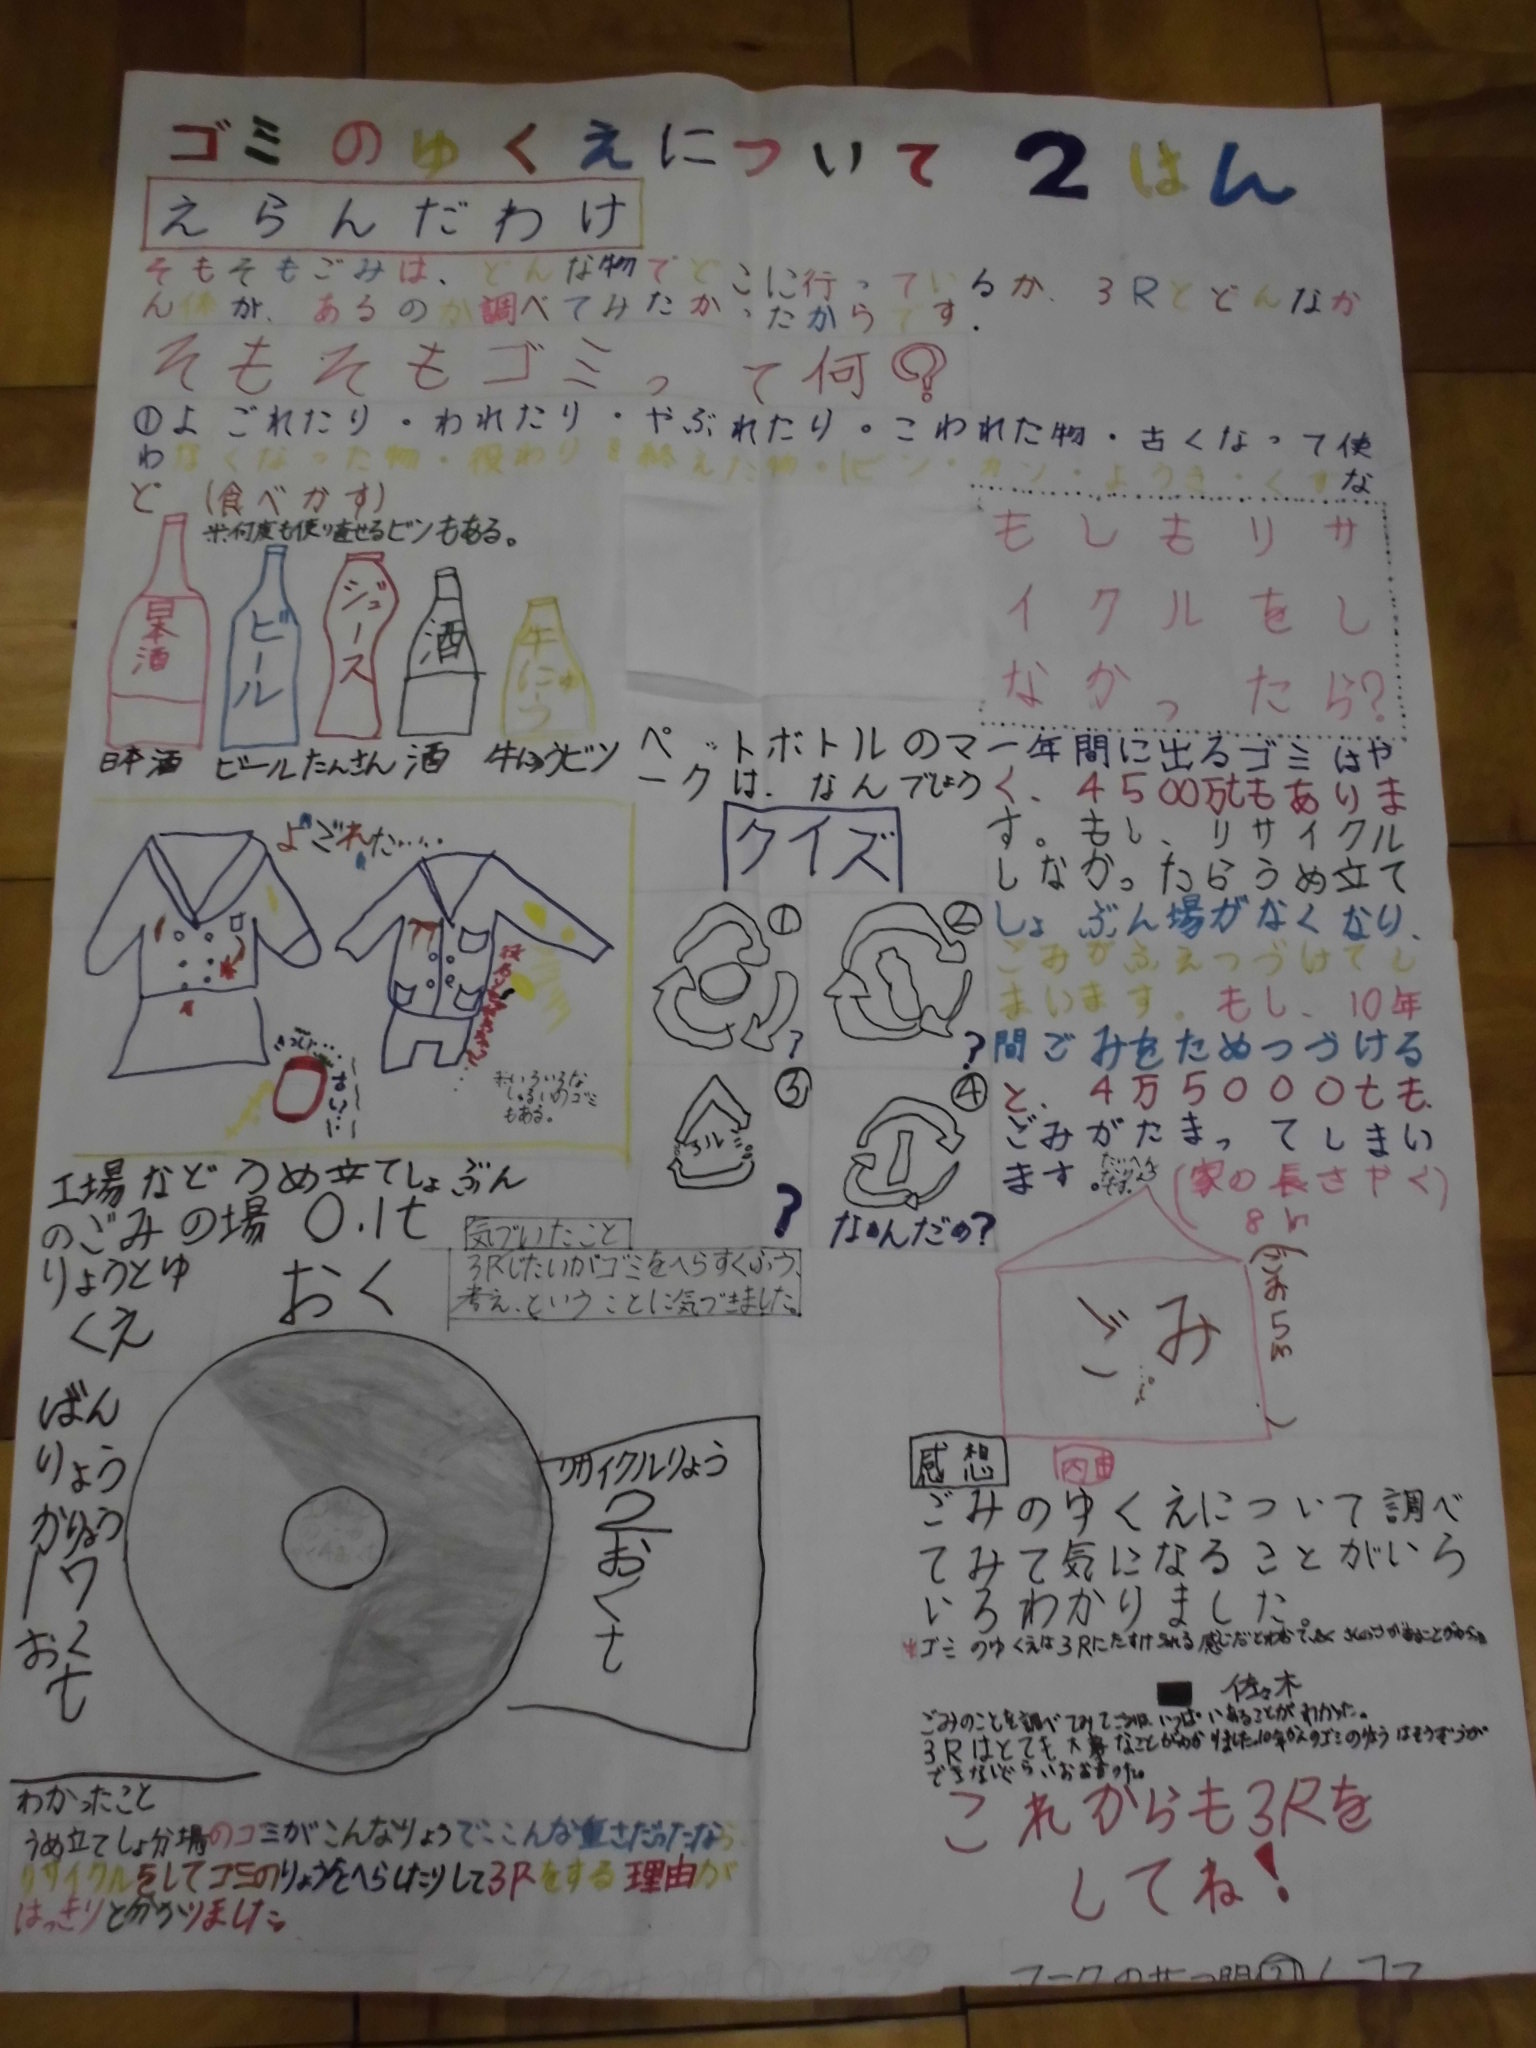 ゴミのゆくえについて 2はん
えらんだわけ
そもそもごみは、どんな物でどこに行っているか、3Rとどんなか
ん係が、あるのか調べてみたかったからです.
そもそもゴミって何?
①よごれたり・われたり・やぶれたり・こわれた物・古くなって使
わなくなった物・役わりを終えた物・(ビン・カン・ようき・くずな
ど (食べかす)
※何度も使り直せるビンもある。
日本酒
ビール
ジュース
酒
牛にゅう
日本酒
ビール
たんさん
酒
牛にゅうビン
よごれた……
※いろいろな
しゅるいのゴミ
もある。
ペットボトルのマ
ークは、なんでしょう
クイズ
①
?
②
?
③
アルミ
?
④
なんだめ?
もしもリサ
イクルをし
なかったら?
一年間に出るゴミはや
く、4500万tもありま
す。もし、リサイクル
しなかったらうめ立て
しょぶん場がなくなり、
ごみがふえつづけてし
まいます。もし、10年
間ごみをためつづける
と、4万5000tも、
ごみがたまってしまい
ます。
(家の長さやく)
8m
(ごみ5m)
ごみ
工場などうめ立てしょぶん
のごみの場 0.1t
りょうとゆ
くえ
おく
気づいたこと
3Rじたいがゴミをへらすくふう、
考え、ということに気づきました。
リサイクルりょう
2おくt
わかったこと
うめ立てしょ分場のゴミがこんなりょうで、こんな重さだったなら、
リサイクルをしてゴミのりょうをへらしたりして3Rをする理由が
はっきりと分かりました。
感想
内田
ごみのゆくえについて調べ
てみて気になることがいろ
いろわかりました
佐々木
これからも3Rを
してね!